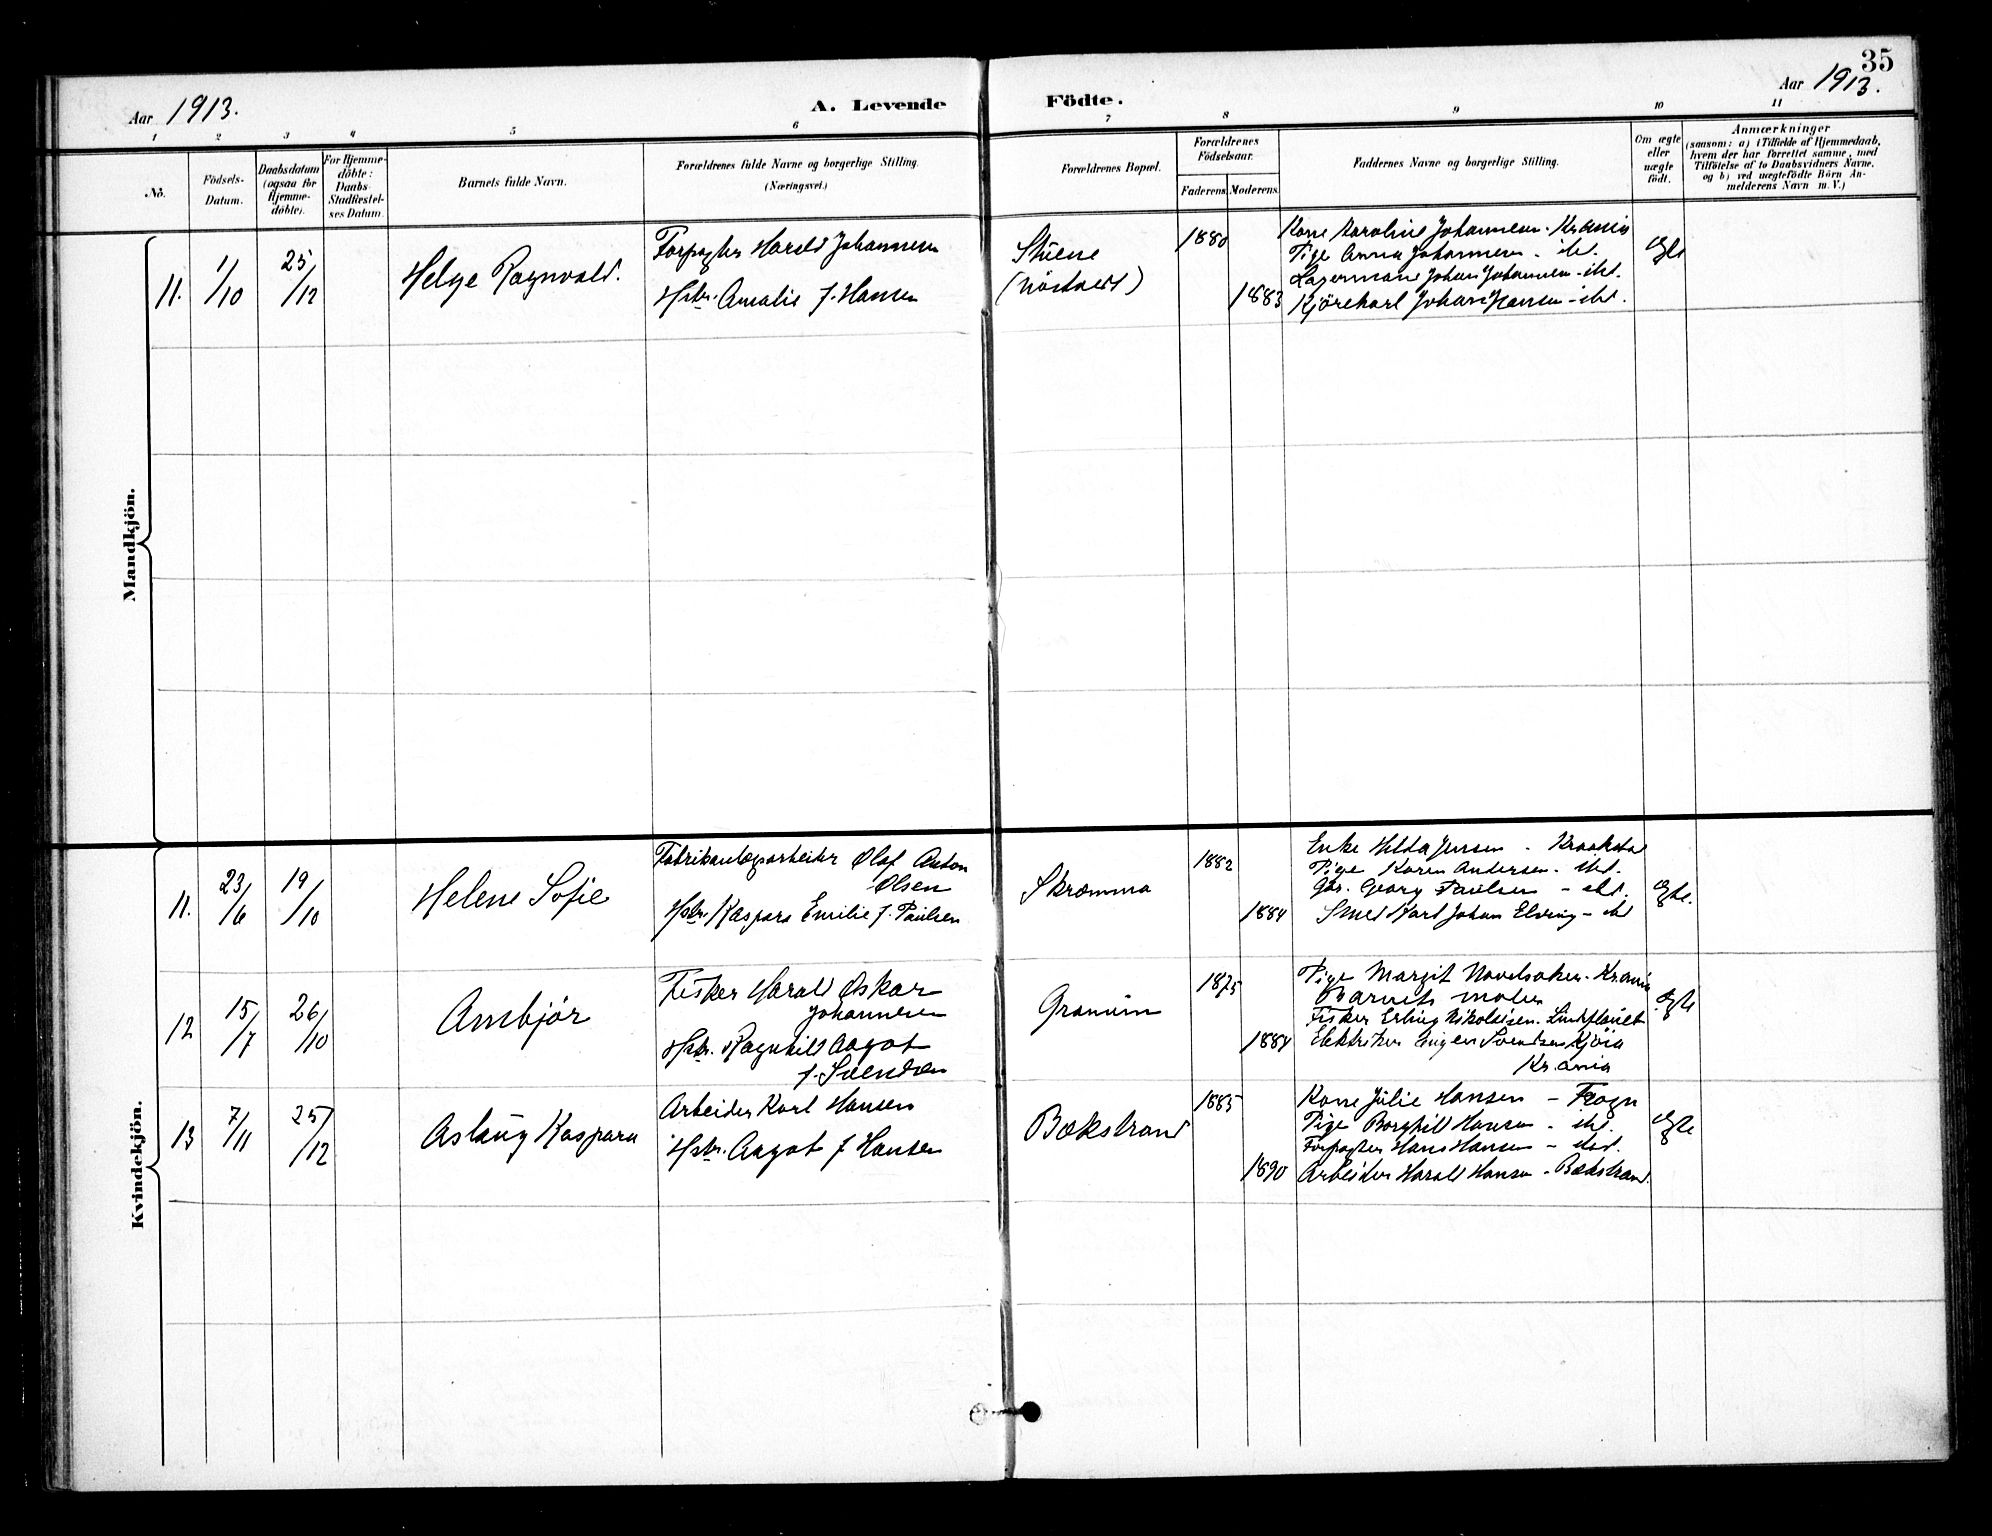 35
Aar 1913.
A. Levende Födte.
Aar 1913.
1 2 3 4 5 6 7 8 9 10 11
No.
Födsels-
Datum.
Daabsdatum
(ogsaa for
Hjemme-
döbte).
For Hjemme-
döbte:
Daabs-
Stadfæstel-
ses Datum.
Barnets fulde Navn.
Forældrenes fulde Navne og borgerlige Stilling.
(Næringsvei.)
Forældrenes Bopæl.
Forældrenes
Födselsaar.
Faderens. Moderens.
Faddernes Navne og borgerlige Stilling.
Om ægte
eller
uægte
födt.
Anmærkninger
(saasom: a) i Tilfælde af Hjemmedaab,
hvem der har forrettet samme, med
Tilföielse af to Daabsvidners Navne.
og b) ved uægtefödte Börn An-
melderens Navn m. V.)
Mandkjön.
11. 1/10 25/12
Helge Ragnvald.
Forpagter Harald Johannesen
Hstr. Amalie f. Hansen
1880
1883
Kone Karoline Johannesen - Kr.ania
Pige Anna Johannesen - ibd.
Lagermand Johan Johannesen - ibd.
Kjörekarl Johan Hansen - ibd.
Egte
Kvindekjön.
11. 23/6 19/10
Helene Sofie
Fabrikarbeider Olaf Anton
Olsen
Hstr. Kaspara Emilie f. Paulsen
Skramma
1882
1884
Enke Hilda Jensen - Kraakstad
Pige Karen Andersen - ibd.
Gbr. Georg Paulsen - ibd.
Smed Karl Johan Elving - ibd
Egte.
12 15/7 26/10
Annbjör
Fisker Harald Oskar
Johannesen
Hstr. Ragnhild Aagot
f. Svendsen
Granum
1875
1884
Pige Margit - Kr.ania
Barnets moder
Fisker Erling Nikolaisen.
Elektriker Eugen Svendsen
Kr.ania
Egte
13 7/11 25/12
Aslaug Kaspara
Arbeider Karl Hansen
Hstr. Aagot f Hansen
Bækstrand
1885
1890
Kone Julie Hansen - Frogn
Pige Borghild Hansen - ibd.
Forpagter Hans Hansen - ibd.
Arbeider Harald Hansen - Bækstrand
Egte